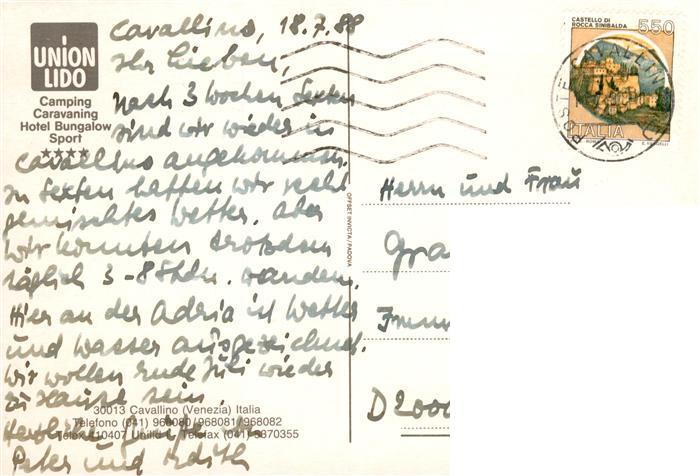 UNION
LIDO
Camping
Caravaning
Hotel Bungalow
Sport
Cavallino, 18.7.88
Ihr Lieben,
nach 3 Wochen Sexten
sind wir wieder in
Cavallino angekommen.
In Sexten hatten wir recht
gemischtes Wetter, aber
wir konnten trotzdem
täglich 3-8 Stdn. wandern.
Hier an der Adria ist Wetter
und Wasser ausgezeichnet.
Wir wollen Ende Juli wieder
zu Hause sein.
Herzliche Grüße
Peter und Edith
30013 Cavallino (Venezia) Italia
Telefono (041) 968080/968081/968082
Telex 410407 Telefax (041) 5370355
OFFSET INVICTA / PADOVA
CASTELLO DI
ROCCA SINIBALDA
550
ITALIA
CAVALLINO
Herrn und Frau
Gra
D 2000